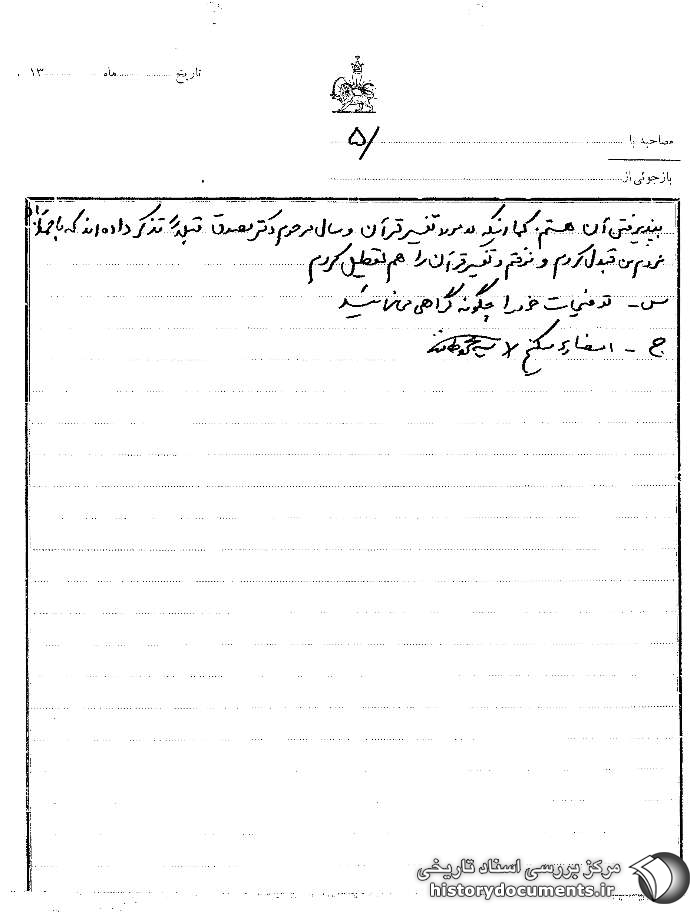 تاریخ ............ ماه ............ ۱۳
مصاحبه با ............ ۵/
بازجوئی از ............
پذیرفتن آن هستم. کما اینکه در مورد تفسیر قرآن و سال مرحوم دکتر مصدق قبلاً تذکر داده اند که
من قبول کردم و نرفتم و تفسیر قرآن را هم تعطیل کردم
س- تقریرات خود را چگونه گواهی می نمائید
ج - امضاء میکنم
مرکز بررسی اسناد تاریخی
historydocuments.ir